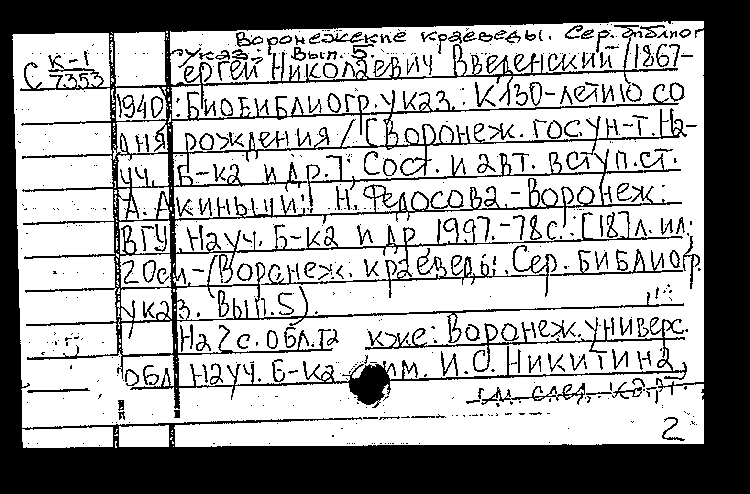 Воронежские краеведы. Сер. библиог
указ. Вып. 5
С К-1
7353
Сергей Николаевич Введенский (1867-
1940): Биобиблиогр. указ.: К 130-летию со
дня рождения / [Воронеж. гос. ун-т. На-
уч. Б-ка и др.]; Сост. и авт. вступ. ст.
А. Акиньший; Н. Федосова. - Воронеж:
ВГУ. Науч. Б-ка и др, 1997. - 78 с.: [18] л. ил;
20 см. - (Воронеж. краеведы. Сер. библиогр.
указ. Вып. 5).
На 2 с. обл. также: Воронеж. универс.
обл науч. Б-ка им. И.С. Никитина,
см. след. карт.
2